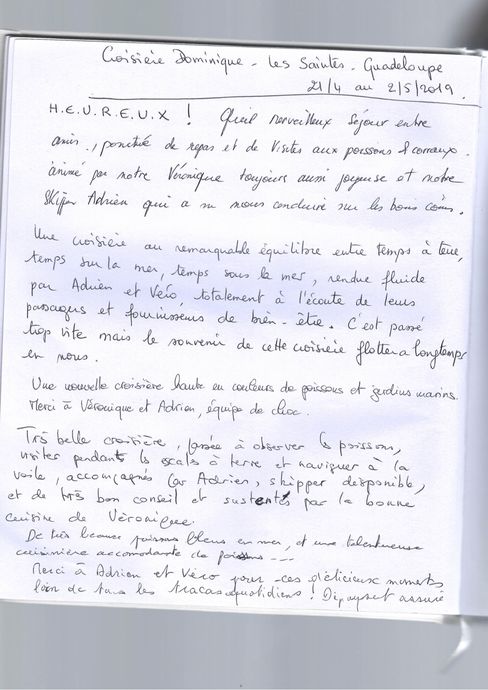 Croisière Dominique - Les Saintes - Guadeloupe
21/4 au 2/5/2019.
H.E.U.R.E.U.X ! Quel merveilleux séjour entre
amis, ponctué de repas et de visites aux poissons & coraux.
animé par notre Véronique toujours aussi joyeuse et notre
skipper Adrien qui a su nous conduire sur les bons coins.
Une croisière au remarquable équilibre entre temps à terre,
temps sur la mer, temps sous la mer, rendue fluide
par Adrien et Véro, totalement à l'écoute de leurs
passagers et fournisseurs de bien-être. C'est passé
trop vite mais le souvenir de cette croisière flottera longtemps
en nous.
Une nouvelle croisière haute en couleurs de poissons et jardins marins.
Merci à Véronique et Adrien, équipe de choc.
Très belle croisière, passée à observer les poissons,
visiter pendant les escales à terre et naviguer à la
voile, accompagnés par Adrien, skipper disponible,
et de très bon conseil et sustentés par la bonne
cuisine de Véronique.
De très beaux poissons bleus en mer, et une talentueuse
cuisinière accomodante de poissons ---
Merci à Adrien et Véro pour ces délicieux moments
loin de tous les tracas quotidiens ! Dépaysement assuré